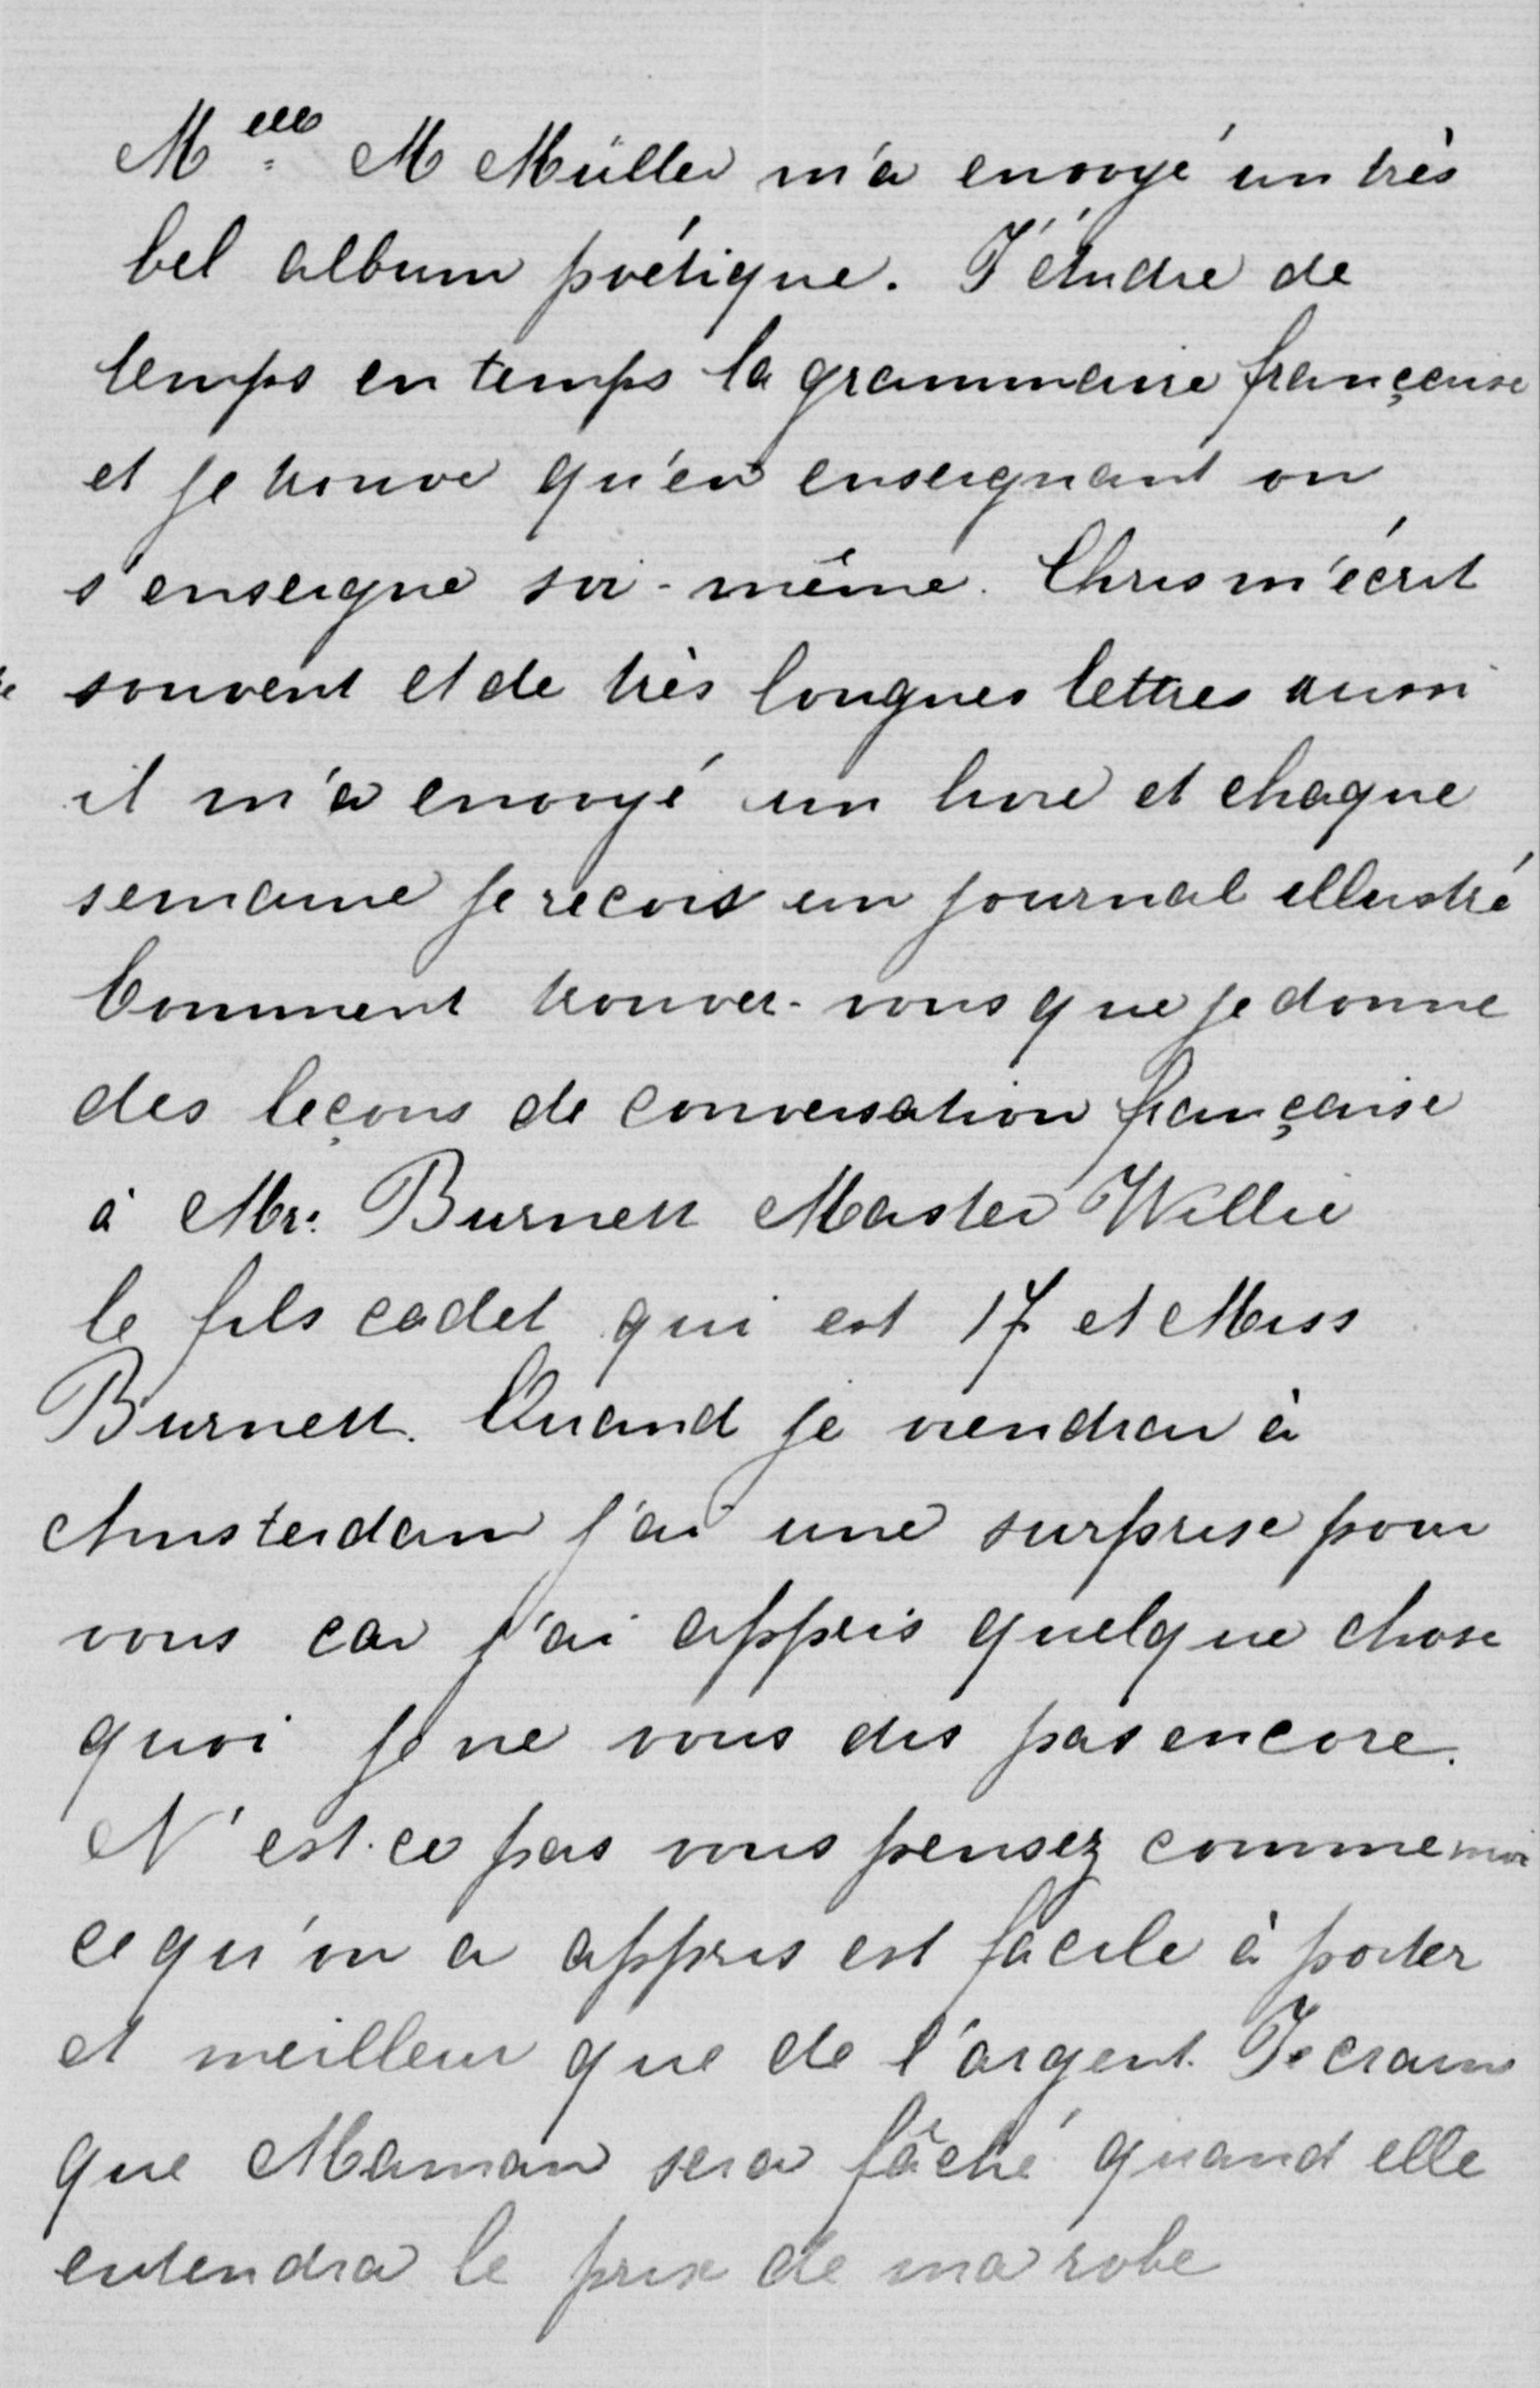 Melle M Müller m'a envoyé un très
bel album poétique. J'étudie de
temps en temps la grammaire française
et je trouve qu'en enseignant on
s'enseigne soi-même. Chris m'écrit
souvent et de très longues lettres aussi
il m'a envoyé un livre et chaque
semaine je reçois un journal illustré
Comment trouvez-vous que je donne
des leçons de conversation française
à Mr. Burnett Master Willie
le fils cadet qui est 17 et Miss
Burnett. Quand je viendrai à
Amsterdam j'ai une surprise pour
vous car j'ai appris quelque chose
quoi je ne vous dis pas encore.
N'est-ce pas vous pensez comme moi
ce qu'on a appris est facile à porter
et meilleur que de l'argent. Je crains
que Maman sera fâché quand elle
entendra le prix de ma robe